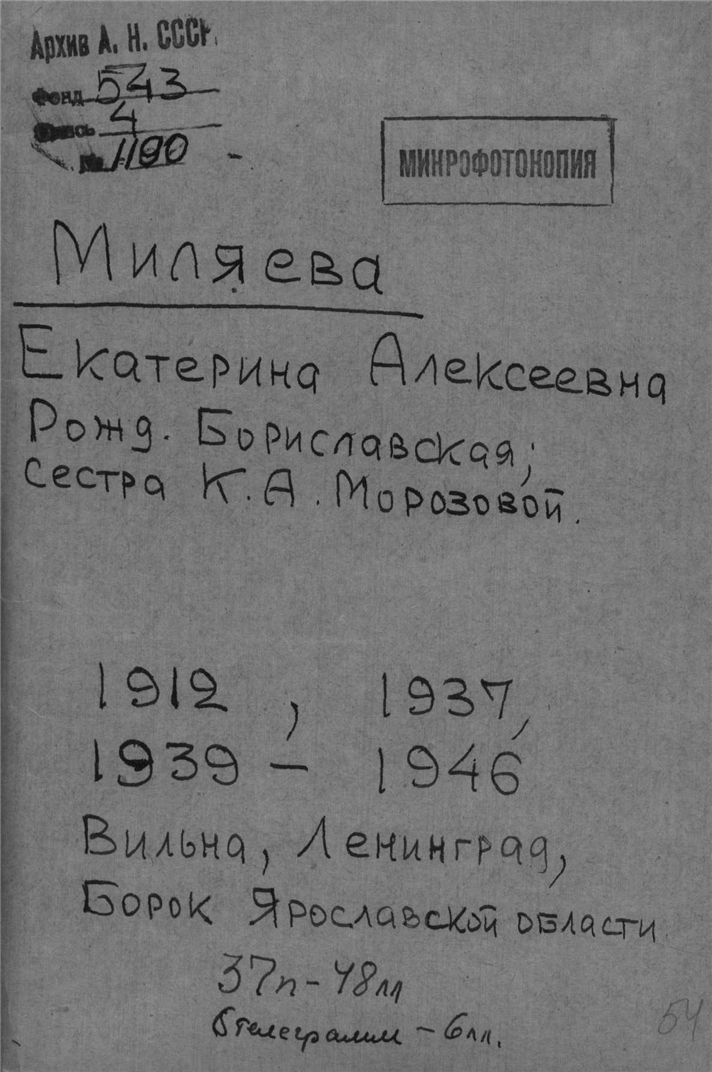 Архив А. Н. СССР.
Фонд 543
Опись 4
№ 1190
МИКРОФОТОКОПИЯ
Миляева
Екатерина Алексеевна
Рожд. Бориславская;
сестра К. А. Морозовой.
1912, 1937,
1939 – 1946
Вильна, Ленинград,
Борок Ярославской области
37п – 48лл
6 телеграмм – 6лл.
54